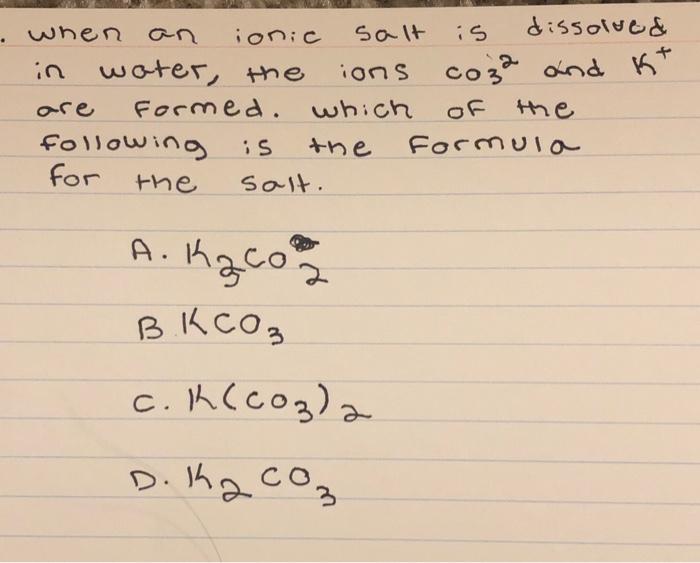 . when an ionic salt is dissolved
in water, the ions CO₃² and K⁺
are formed. which of the
following is the formula
for the salt.
A. K₃CO₂
B KCO₃
C. K(CO₃)₂
D. K₂CO₃